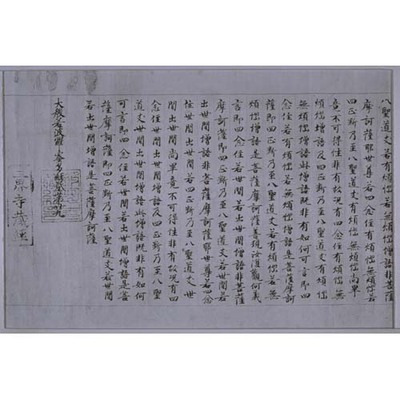 八聖道支若有煩惱若無煩惱增語非菩薩
摩訶薩耶世尊若四念住有煩惱無煩惱若
四正斷乃至八聖道支有煩惱無煩惱尚畢
竟不可得性非有故況有四念住有煩惱無
煩惱增語及四正斷乃至八聖道支有煩惱
無煩惱增語此增語既非有如何可言即四
念住若有煩惱若無煩惱增語是菩薩摩訶
薩即四正斷乃至八聖道支若有煩惱若無
煩惱增語是菩薩摩訶薩善現汝復觀何義
言即四念住若世間若出世間增語非菩薩
摩訶薩即四正斷乃至八聖道支若世間若
出世間增語非菩薩摩訶薩耶世尊若四念
住世間出世間若四正斷乃至八聖道支世
間出世間尚畢竟不可得性非有故況有四
念住世間出世間增語及四正斷乃至八聖
道支世間出世間增語此增語既非有如何
可言即四念住若世間若出世間增語是菩
薩摩訶薩即四正斷乃至八聖道支若世間
若出世間增語是菩薩摩訶薩
大般若波羅蜜多經卷第九